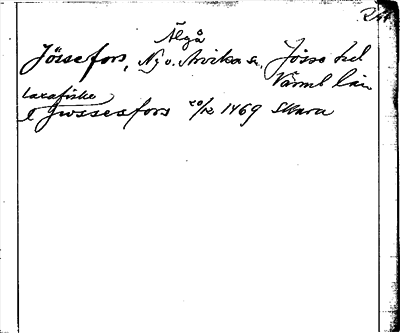 Älgå
Jössefors, Ny o. Arvika sn, Jösse hd
Värml län
laxafiske
i Jwssesfors 20/12 1469 Skara